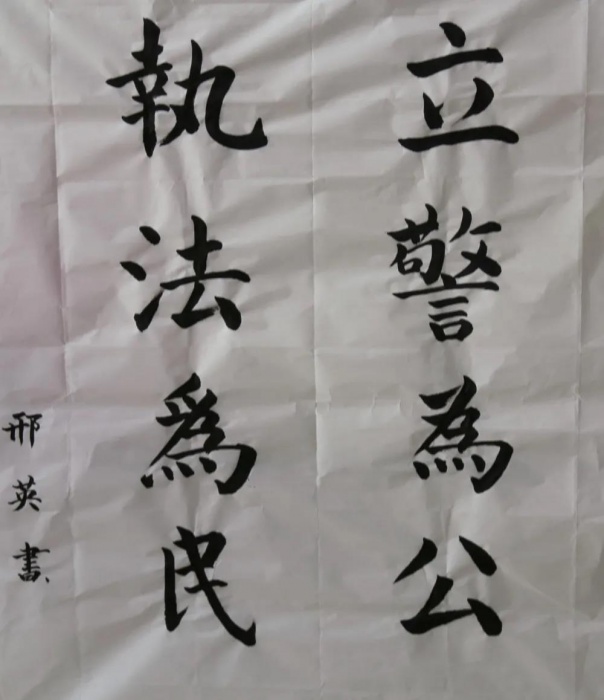 立警為公
執法爲民
邢英書